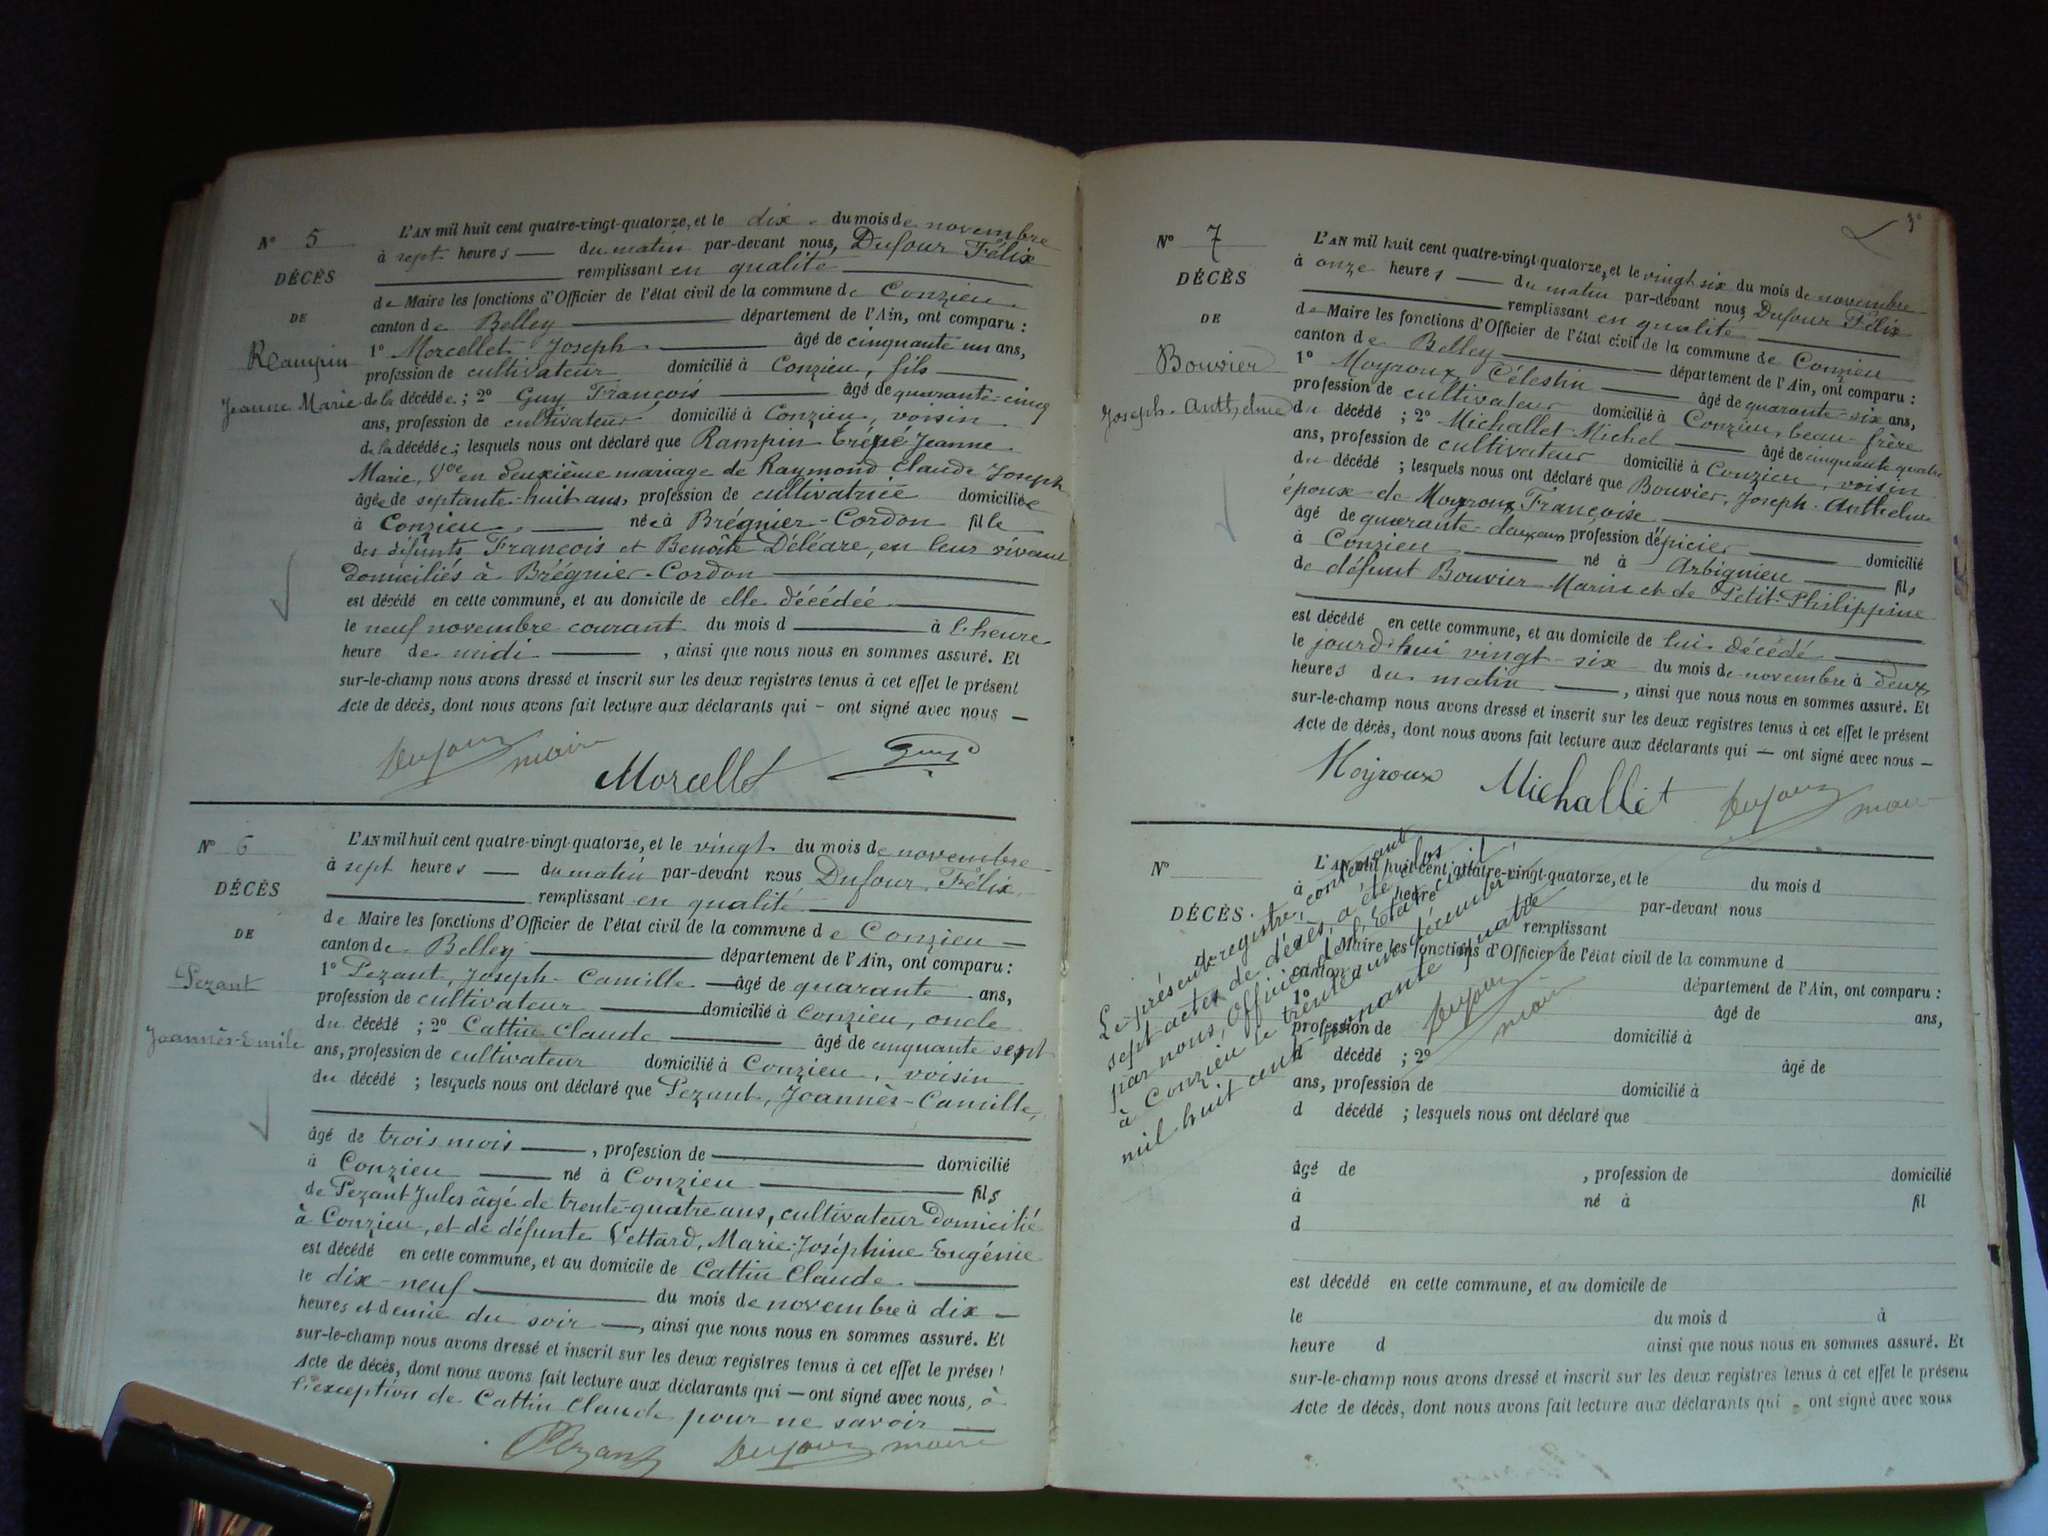 N° 5
DÉCÈS
DE
Rampin
Jeanne Marie
L'AN mil huit cent quatre-vingt-quatorze, et le dix du mois de novembre
à sept heures du matin par-devant nous, Dufour Félix
remplissant en qualité
de Maire les fonctions d'Officier de l'état civil de la commune de Conzieu
canton de Belley département de l'Ain, ont comparu :
1° Morcellet Joseph âgé de cinquante un ans,
profession de cultivateur domicilié à Conzieu, fils
de la décédée ; 2° Guy François âgé de quarante-cinq
ans, profession de cultivateur domicilié à Conzieu, voisin
de la décédée ; lesquels nous ont déclaré que Rampin Jeanne
Marie, Vve en deuxième mariage de Raymond Claude Joseph
âgée de septante-huit ans, profession de cultivatrice domiciliée
à Conzieu, née à Brégnier-Cordon fille
des défunts François et Benoîte, en leur vivant
domiciliés à Brégnier-Cordon
est décédé en cette commune, et au domicile de elle décédée
le neuf novembre courant du mois d à l'heure
heure de midi, ainsi que nous nous en sommes assuré. Et
sur-le-champ nous avons dressé et inscrit sur les deux registres tenus à cet effet le présent
Acte de décès, dont nous avons fait lecture aux déclarants qui - ont signé avec nous -
Dufour maire Morcellet Guy
N° 6
DÉCÈS
DE
Pezant
Joannès-Emile
L'AN mil huit cent quatre-vingt-quatorze, et le vingt du mois de novembre
à sept heures du matin par-devant nous Dufour Félix
remplissant en qualité
de Maire les fonctions d'Officier de l'état civil de la commune de Conzieu
canton de Belley département de l'Ain, ont comparu :
1° Pezant, Joseph-Camille âgé de quarante ans,
profession de cultivateur domicilié à Conzieu, oncle
du décédé ; 2° Cattin Claude âgé de cinquante sept
ans, profession de cultivateur domicilié à Conzieu, voisin
du décédé ; lesquels nous ont déclaré que Pezant, Joannès-Camille,
âgé de trois mois, profession de domicilié
à Conzieu né à Conzieu fils
de Pezant Jules âgé de trente-quatre ans, cultivateur domicilié
à Conzieu, et de défunte Vettard, Marie-Joséphine Eugénie
est décédé en cette commune, et au domicile de Cattin Claude
le dix-neuf du mois de novembre à dix
heures et demie du soir, ainsi que nous nous en sommes assuré. Et
sur-le-champ nous avons dressé et inscrit sur les deux registres tenus à cet effet le présent
Acte de décès, dont nous avons fait lecture aux déclarants qui - ont signé avec nous, à
l'exception de Cattin Claude pour ne savoir
Pezant Dufour maire
3°
N° 7
DÉCÈS
DE
Bouvier
Joseph-Anthelme
L'AN mil huit cent quatre-vingt-quatorze, et le vingt six du mois de novembre
à onze heures du matin par-devant nous, Dufour Félix
remplissant en qualité
de Maire les fonctions d'Officier de l'état civil de la commune de Conzieu
canton de Belley département de l'Ain, ont comparu :
1° Moyroux, Célestin âgé de quarante-six ans,
profession de cultivateur domicilié à Conzieu, beau-frère
du décédé ; 2° Michallet Michel âgé de cinquante quatre
ans, profession de cultivateur domicilié à Conzieu, voisin
du décédé ; lesquels nous ont déclaré que Bouvier, Joseph-Anthelme
époux de Moyroux Françoise
âgé de quarante-deux ans profession d'épicier domicilié
à Conzieu né à Arbignieu fils
de défunt Bouvier Marin et de Petit Philippine
est décédé en cette commune, et au domicile de lui décédé
le jourd'hui vingt-six du mois de novembre à deux
heures du matin, ainsi que nous nous en sommes assuré. Et
sur-le-champ nous avons dressé et inscrit sur les deux registres tenus à cet effet le présent
Acte de décès, dont nous avons fait lecture aux déclarants qui - ont signé avec nous -
Moyroux Michallet Dufour maire
N°
DÉCÈS
L'AN mil huit cent quatre-vingt-quatorze, et le du mois d
à heure par-devant nous
remplissant
Maire les fonctions d'Officier de l'état civil de la commune d
canton d département de l'Ain, ont comparu :
1° âgé de ans,
profession de domicilié à
d décédé ; 2° âgé de
ans, profession de domicilié à
d décédé ; lesquels nous ont déclaré que
âgé de , profession de domicilié
à né à fil
d
est décédé en cette commune, et au domicile de
le du mois d à
heure d ainsi que nous nous en sommes assuré. Et
sur-le-champ nous avons dressé et inscrit sur les deux registres tenus à cet effet le présent
Acte de décès, dont nous avons fait lecture aux déclarants qui ont signé avec nous
Le présent registre, contenant
sept actes de décès, a été clos
par nous, Officier de l'État civil
à Conzieu le trente un décembre
mil huit cent nonante quatre
Dufour
maire